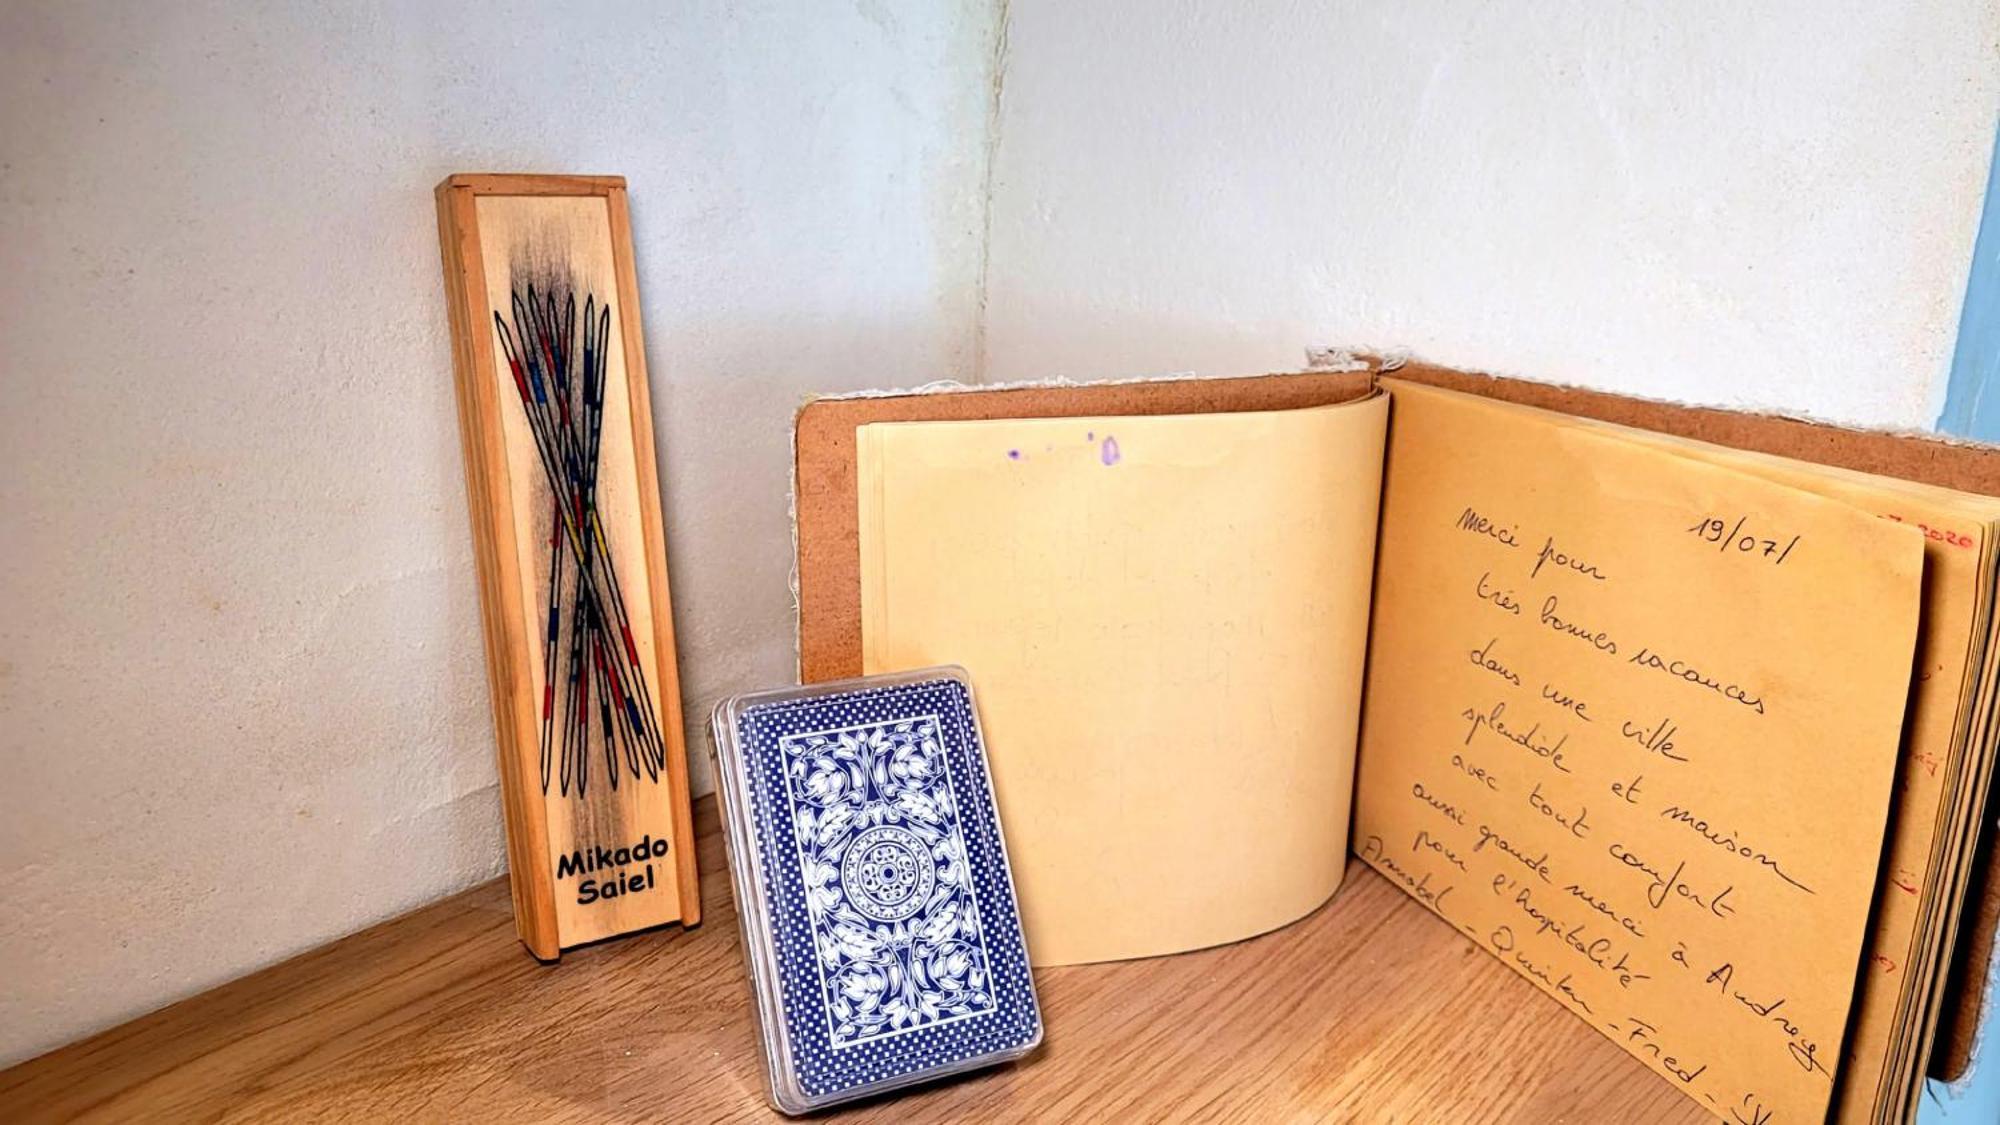 Mikado
Saiel
19/07/
merci pour
très bonnes vacances
dans une ville
splendide et maison
avec tout comfort
aussi grande merci à Audrey
pour l'hospitalité
Annabel - Quinten - Fred -
2020